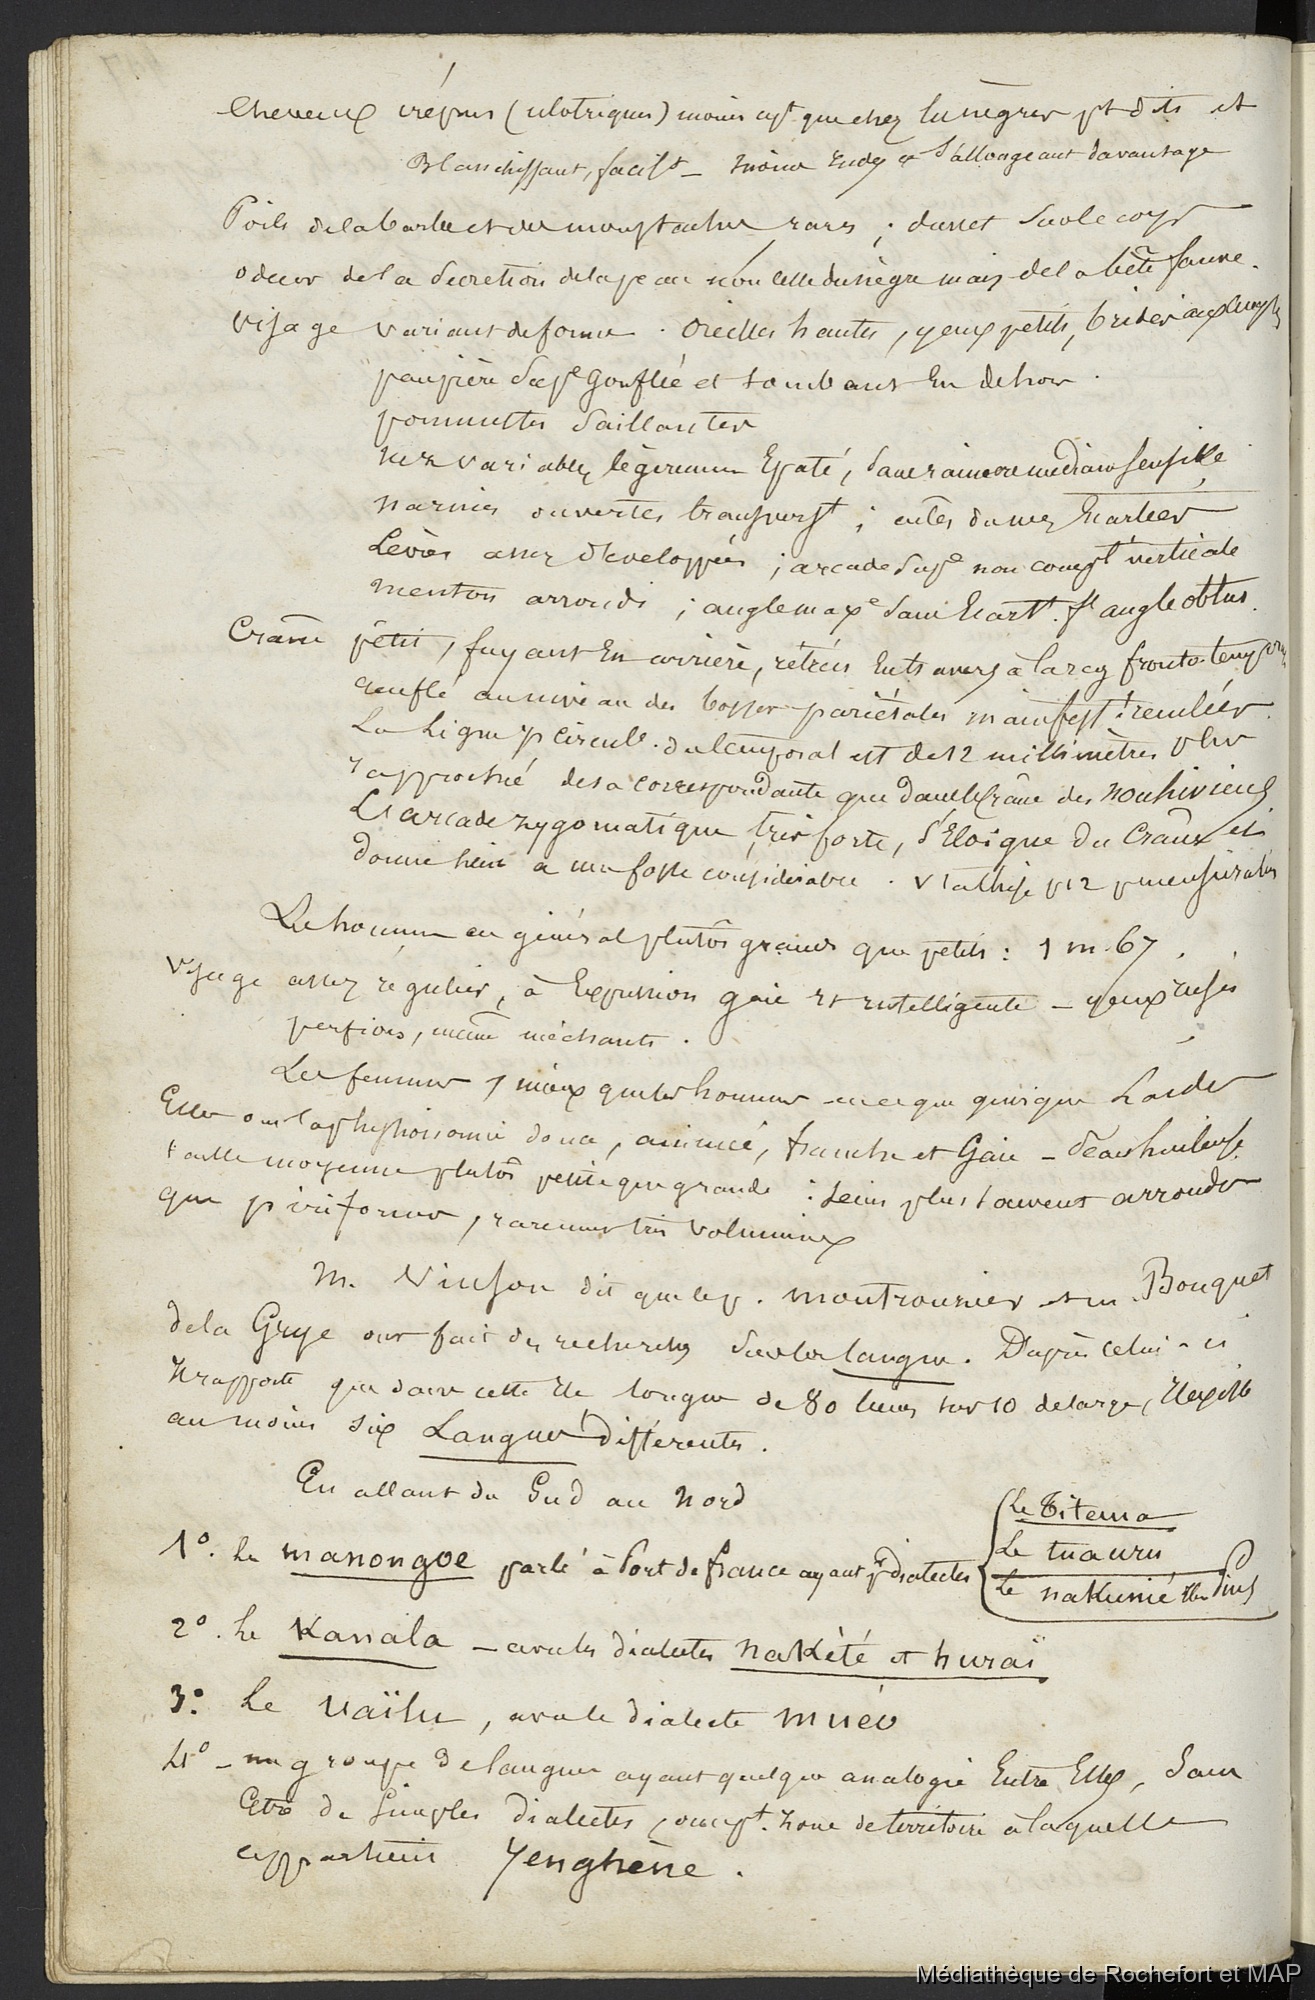 Cheveux crépus (ulotriques) moins cept que chez les nègres pt dits et
Blanchissant, facilt _ moins rudes et s'allongeant davantage
Poils de la barbe et des moustaches rares ; duvet sur le corps
odeur de la Secretion de la peau non celle du nègre mais de la bête fauve.
Visage variant de forme . Oreilles hautes, yeux petits, bridés aux angles
paupière Supe Gonflée et tombant En dehors .
pommettes Saillantes
nez variable, légèrement Epaté, Sans rainure médiane sensible
narines ouvertes transverst ; côtés du nez Ecartées
Lèvres assez développées ; arcade Supe non compt verticale
Menton arrondi ; angle maxe Sans Ecartt. pt angle obtus.
Crâne petit, fuyant En arrière, rétréci En travers à la reg fronto-temporale
Gonflé au niveau des bosses pariétales manifestt reculées.
La Ligne circule. du temporal est de 12 millimètres plus
rapproché de sa correspondante que dans le crâne des nouhiviens
L'arcade zygomatique très forte, s'Eloigne du Crâne et
donne lieu à une fosse considérable .
Les hommes en général plutôt grands que petits : 1 m. 67 .
Visage assez régulier, à Expression gaie et intelligente _ yeux rusés
perfides, même méchants .
Les femmes mieux que les hommes _ quoique Laides
Elles ont la physionomie douce, animée, franche et Gaie _
taille moyenne plutôt petite que grande ; Seins plus souvent arrondis
que piriformes, rarement très volumineux
M. Vinson dit que le p. Montrouzier et m. Bouquet
de la Grye ont fait des recherches Sur les langues. D'après celui-ci
Il rapporte que dans cette Ile longue de 80 lieues sur 10 de large, Il existe
au moins six Langues différentes.
En allant du Sud au Nord
1º. Le manongoe parlé à Port de france ayant pr dialectes
Le Titema
Le tuauru
Le nakunié Ile des Pins
2º. Le Kanala _ avec les dialectes nakété et hurai
3º. Le Uaïlu, avec le dialecte muéo
4º _ un groupe de langues ayant quelque analogie Entre Elles, Sans
Etre de Simples dialectes, occupt. zone de territoire à laquelle
appartient Yenghène .
Médiathèque de Rochefort et MAP